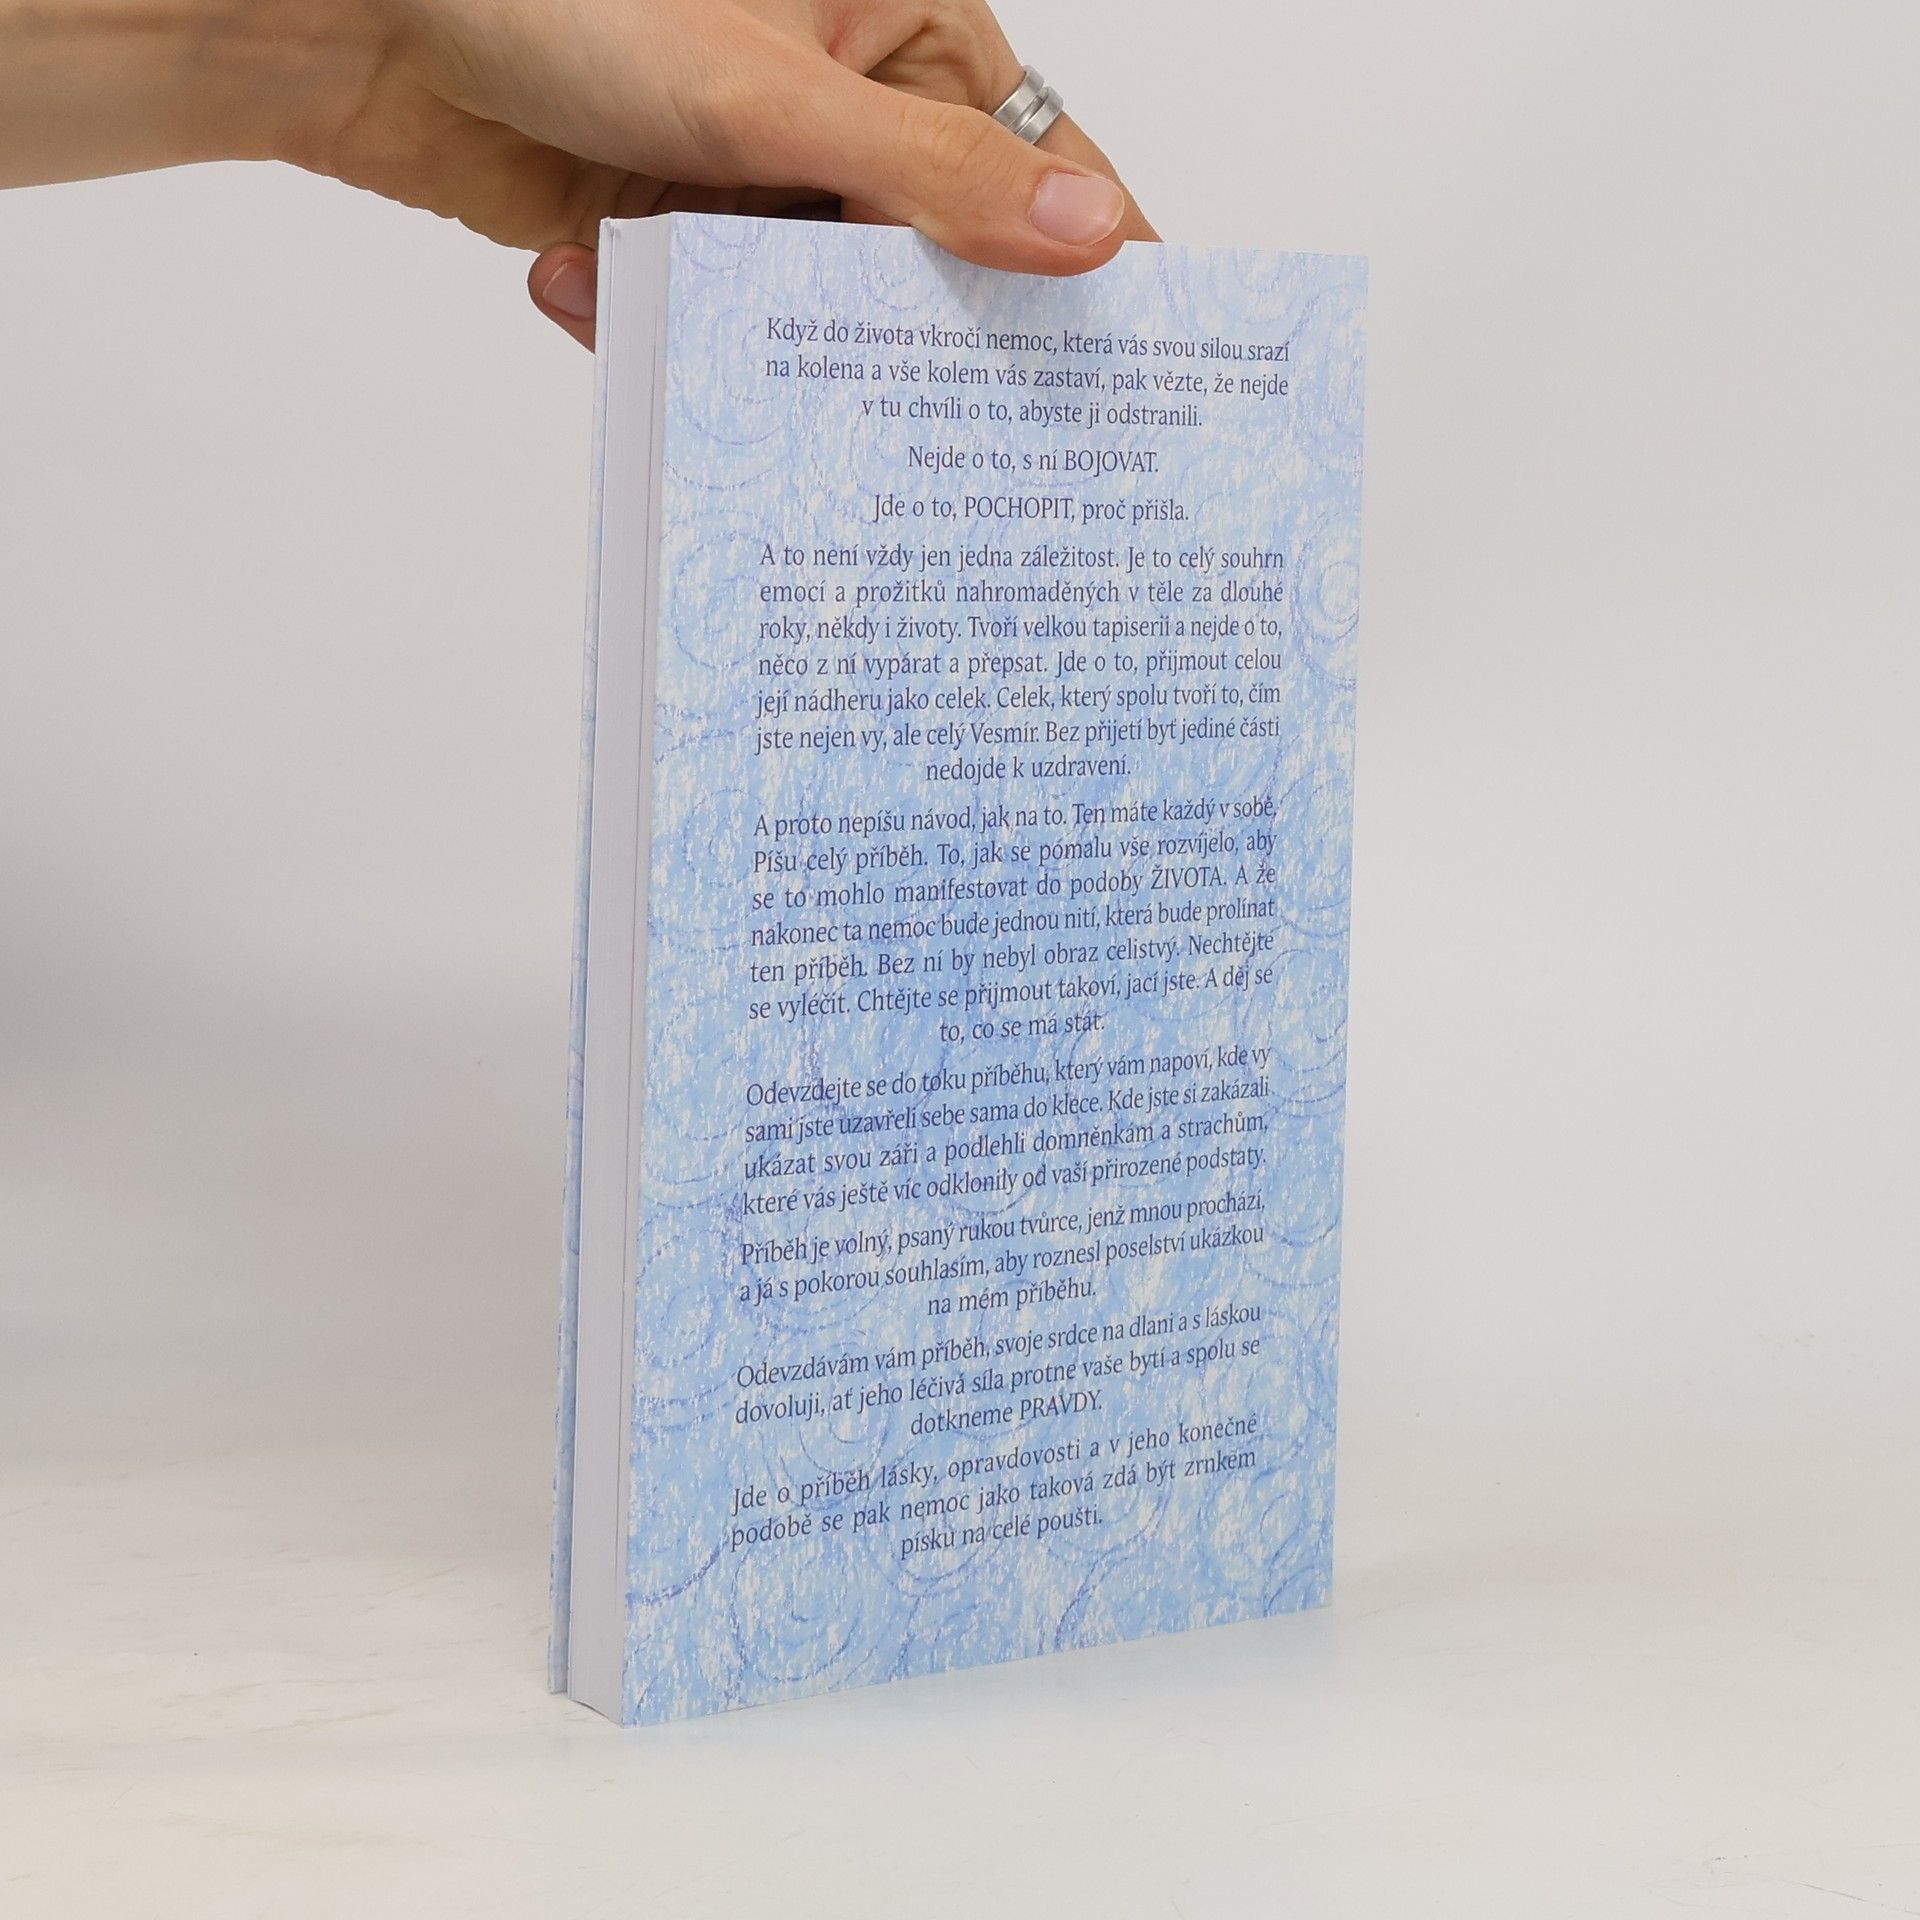 Když do života vkročí nemoc, která vás svou silou srazí
na kolena a vše kolem vás zastaví, pak vězte, že nejde
v tu chvíli o to, abyste ji odstranili.
Nejde o to, s ní BOJOVAT.
Jde o to, POCHOPIT, proč přišla.
A to není vždy jen jedna záležitost. Je to celý souhrn
emocí a prožitků nahromaděných v těle za dlouhé
roky, někdy i životy. Tvoří velkou tapiserii a nejde o to,
něco z ní vypárat a přepsat. Jde o to, přijmout celou
její nádheru jako celek. Celek, který spolu tvoří to, čím
jste nejen vy, ale celý Vesmír. Bez přijetí byť jediné části
nedojde k uzdravení.
A proto nepíšu návod, jak na to. Ten máte každý v sobě.
Píšu celý příběh. To, jak se pomalu vše rozvíjelo, aby
se to mohlo manifestovat do podoby ŽIVOTA. A že
nakonec ta nemoc bude jednou nití, která bude prolínat
ten příběh. Bez ní by nebyl obraz celistvý. Nechtějte
se vyléčit. Chtějte se přijmout takoví, jací jste. A děj se
to, co se má stát.
Odevzdejte se do toku příběhu, který vám napoví, kde vy
sami jste uzavřeli sebe sama do klece. Kde jste si zakázali
ukázat svou záři a podlehli domněnkám a strachům,
které vás ještě víc odklonily od vaší přirozené podstaty.
Příběh je volný, psaný rukou tvůrce, jenž mnou prochází,
a já s pokorou souhlasím, aby roznesl poselství ukázkou
na mém příběhu.
Odevzdávám vám příběh, svoje srdce na dlani a s láskou
dovoluji, ať jeho léčivá síla protne vaše bytí a spolu se
dotkneme PRAVDY.
Jde o příběh lásky, opravdovosti a v jeho konečné
podobě se pak nemoc jako taková zdá být zrnkem
písku na celé poušti.